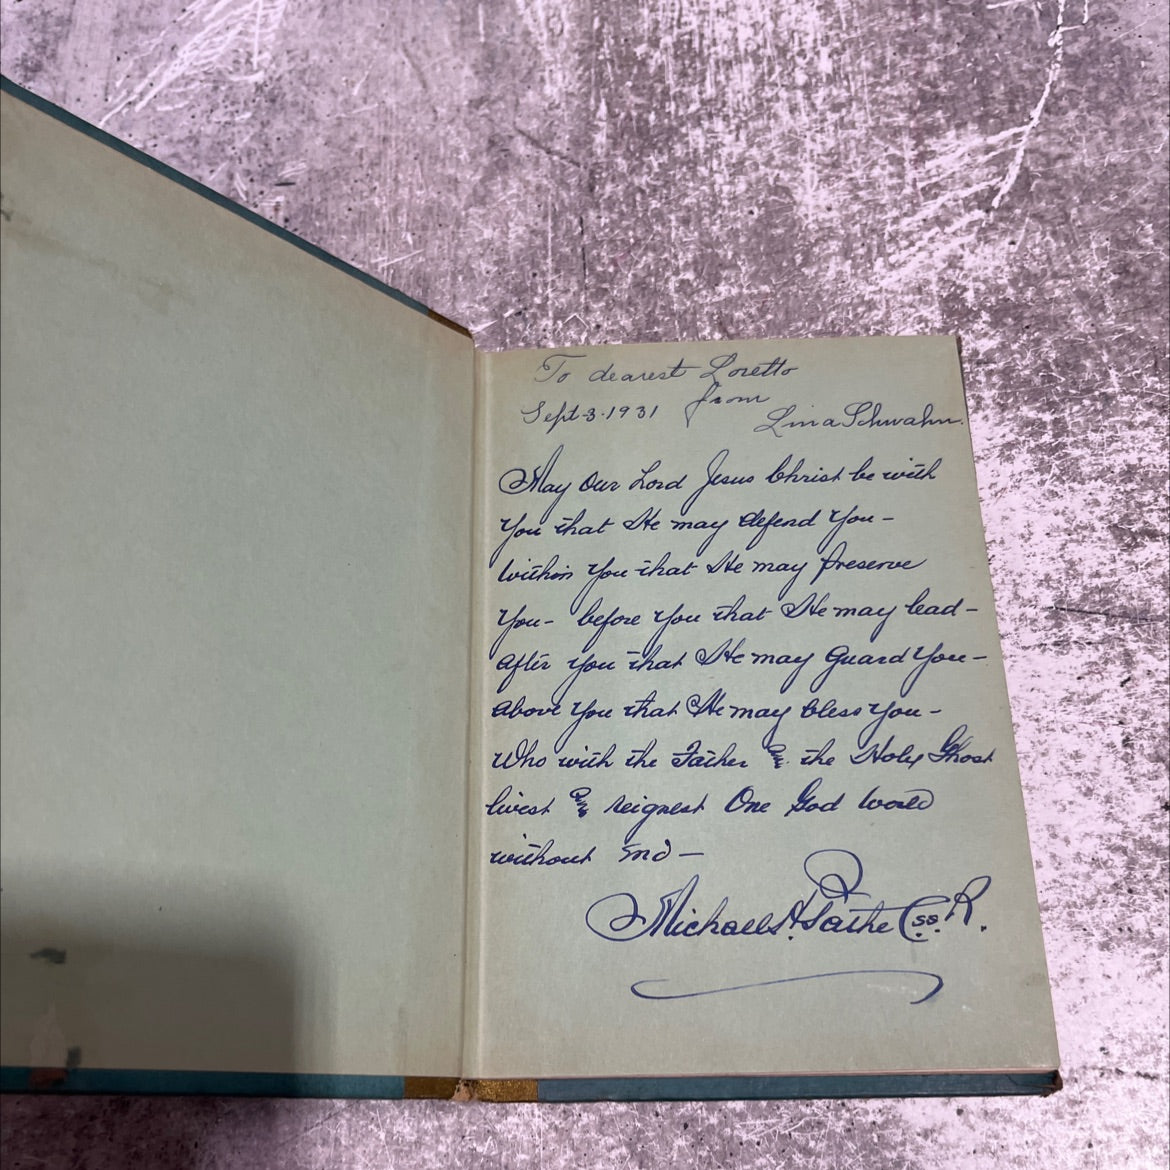 To dearest Loretto
from
Sept 3 - 1931 Lina Schwahn.
May Our Lord Jesus Christ be with
You that He may defend You -
within You that He may preserve
You - before You that He may lead -
after You that He may Guard You -
above You that He may bless You -
Who with the Father & the Holy Ghost
livest & reignest One God World
without End -
Michael H. Pathe C.ss.R.